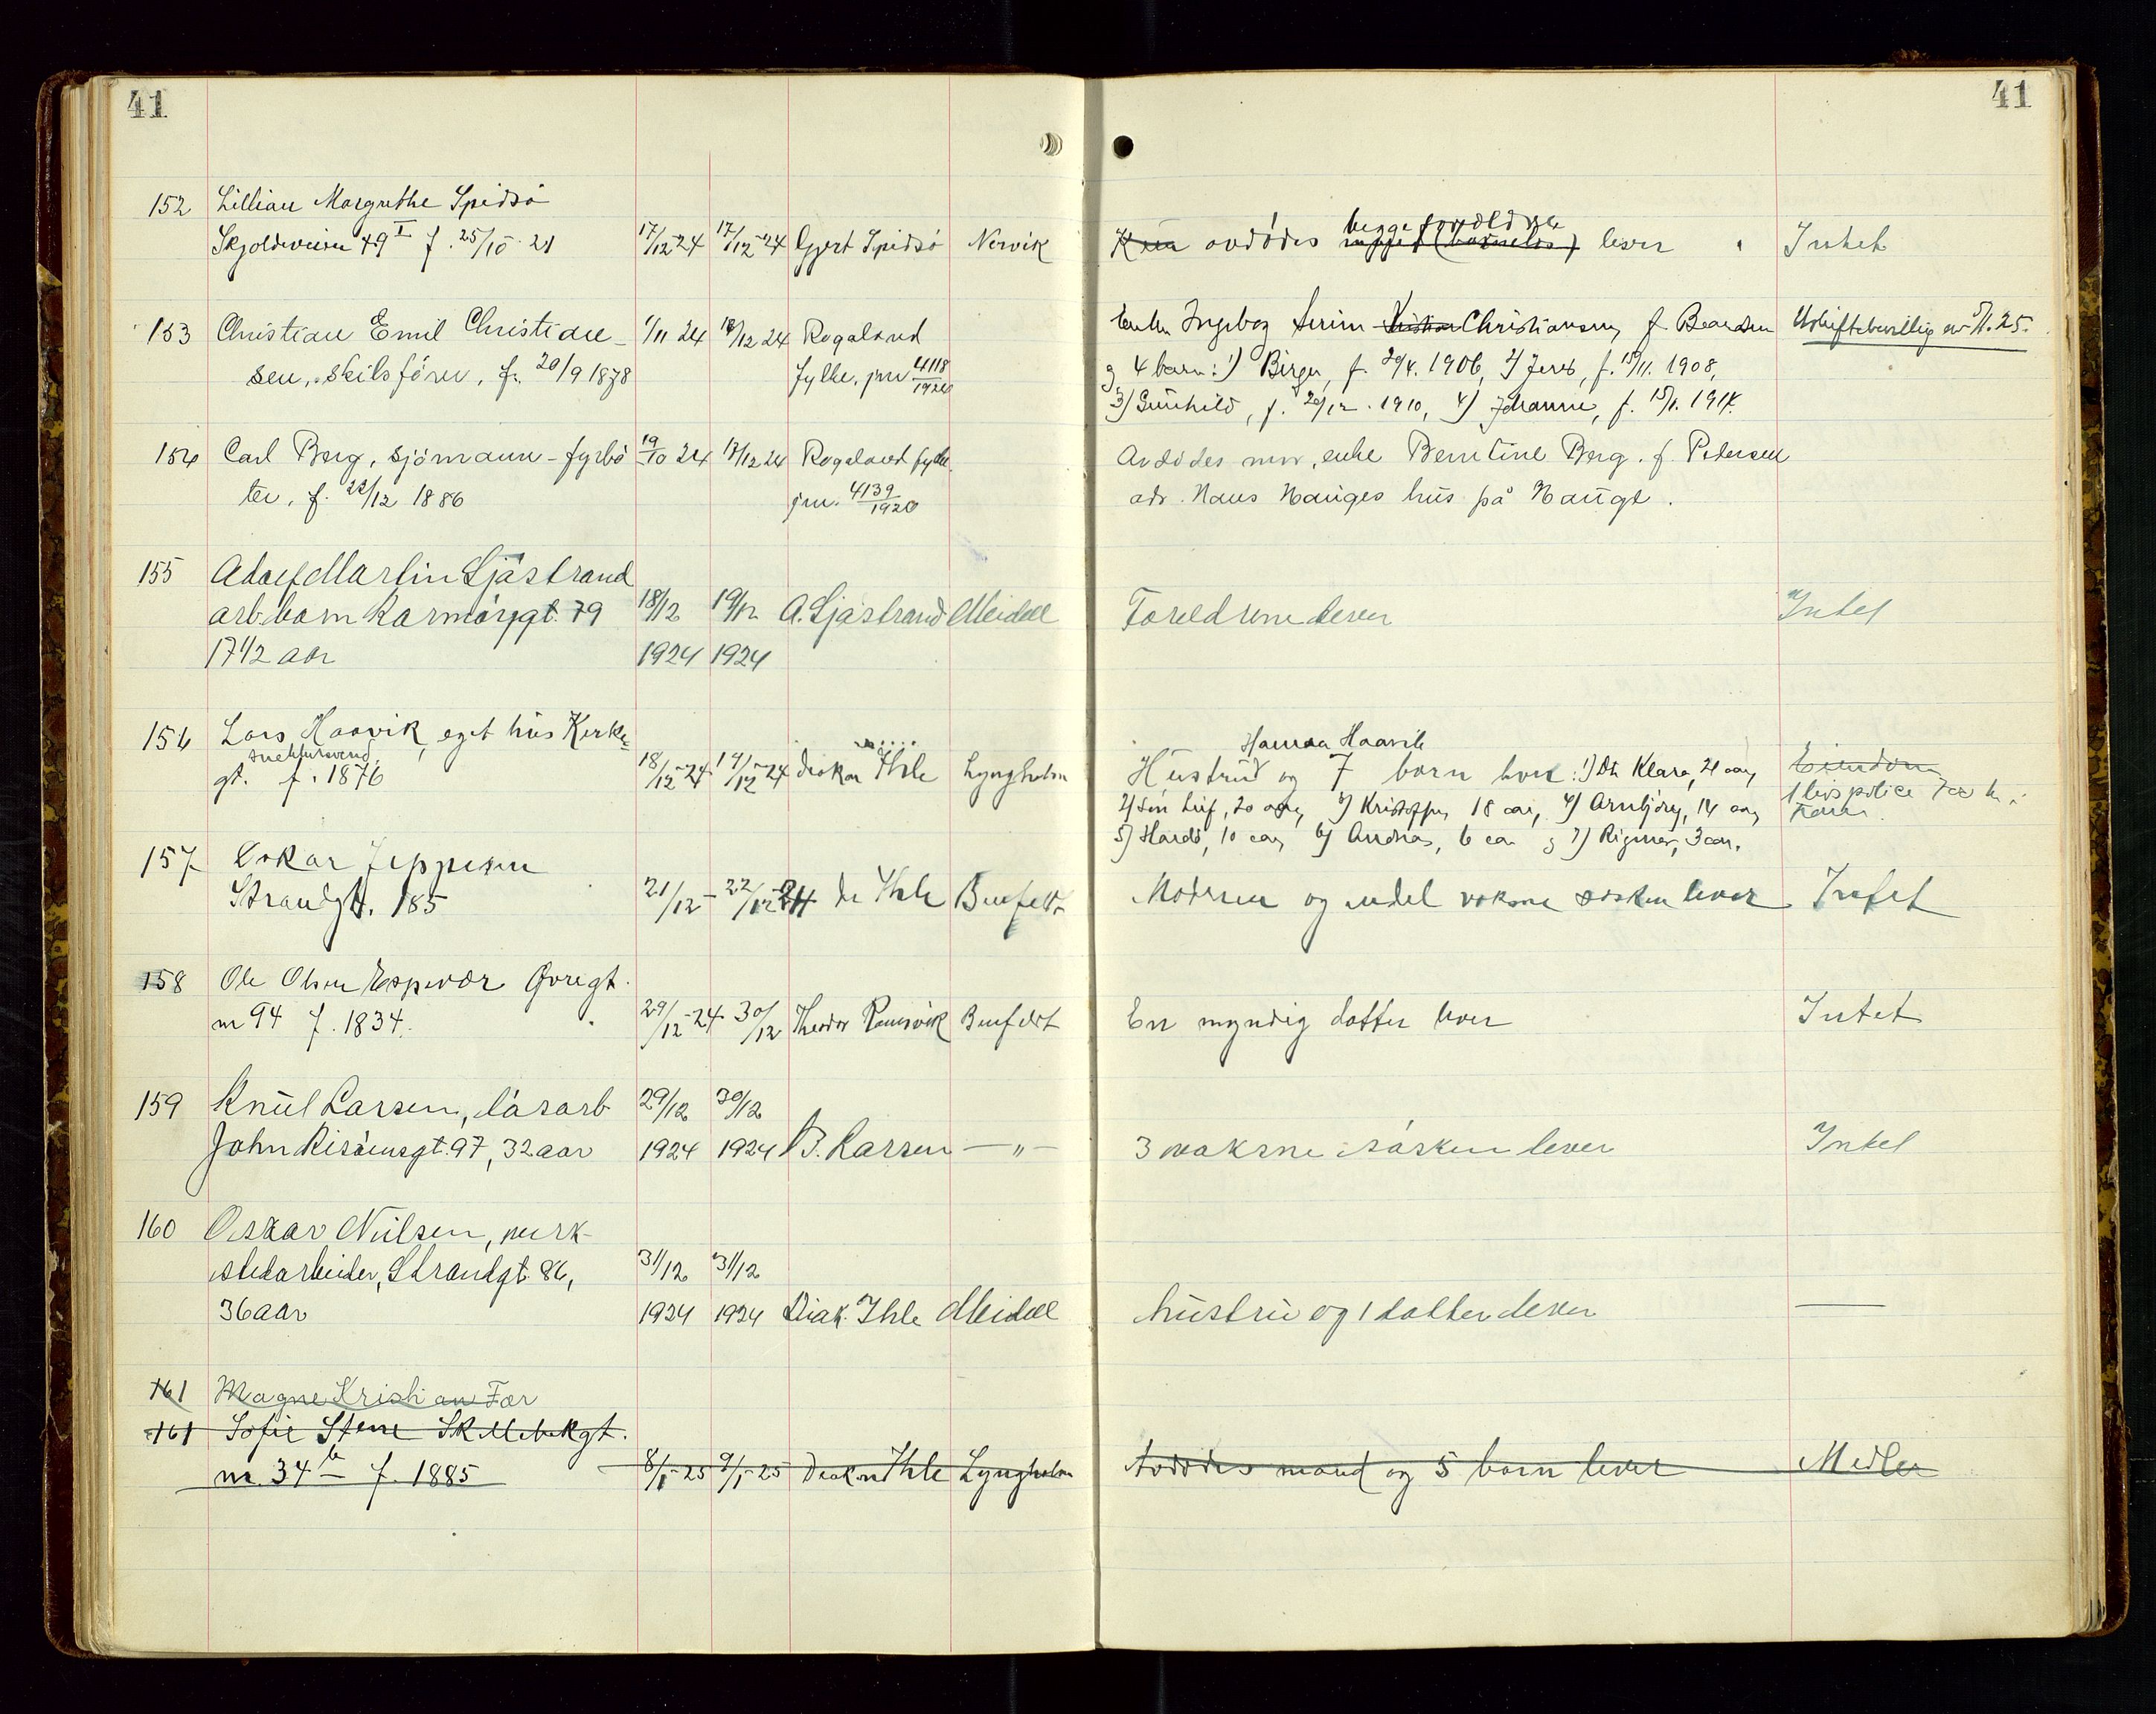 41
41
152 Lillian Margrethe Spidsö
Skjoldveien 49 I f. 25/10 21 17/12-24 17/12-24 Gjert Spidsö Nervik avdödes begge foreldre lever Intet
153 Christian Emil Christian- 1/11 24 18/12 24 Rogaland Enken Ingeborg Serine Christiansen, f. Uskiftebevillg av 5/1.25.
sen, skibsförer, f. 20/9 1878 fylke. jnr 4118/1924 og 4 barn: 1) Birger, f. 29/4. 1906, 2) f. 15/11. 1908,
3) Gunhild, f. 20/12. 1910, 4) Johanne, f. 15/1. 1914.
154 Carl Berg, sjömann - fyrbö 19/10 24 17/12 24 Rogaland fylke Avdödes mor, enke Berntine Berg. f. Petersen
ter, f. 22/12 1886 jnr. 4139/1920 adr. Hans Hauges hus på Hauge.
155 Adolf Martin Sjöstrand
arb.barn Karmöygt. 79 18/12 19/12 A. Sjöstrand Meidell Foreldrene lever Intet
17 1/2 aar 1924 1924
156 Lars Haavik, eget hus Kirke-
snekkersvend Hanna Haavik
gt. f. 1876 18/12-24 19/12-24 diakon Ihle Lyngholm Hustru og 7 barn lever: 1) Dtr Klara, 21 aar, Eiendom
2) Sön Leif, 20 aar, 3) Kristoffer, 18 aar, 4) Arnbjörg, 14 aar, 1 livspolice
5) Harald, 10 aar, 6) Andreas, 6 aar og 7) Rigmor, 3 aar.
157 Oskar Jeppesen
Strandgt. 185 21/12- 22/12-24 di Ihle Benfeldt Moderen og endel voksne sösken lever Intet
158 Ole Olsen Espevær Övregt.
nr 94 f. 1834. 29/12-24 30/12 Theodor Ramsvik Benfeldt En myndig datter lever Intet
159 Knut Larsen, lösarb 29/12 30/12
John Risöensgt. 97, 32 aar 1924 1924 B. Larsen — " — 3 voksne sösken lever Intet
160 Oskar Nilsen, verk-
stedarbeider, Strandgt. 86, 31/12 31/12
36 aar 1924 1924 Diak. Ihle Meidell hustru og 1 datter lever —
161 Magne Kristian Før
161 Sofie Stene Skillebekgt.
nr. 34 b f. 1885 8/1-25 9/1-25 Diakon Ihle Lyngholm Avdödes mand og 5 barn lever Midler